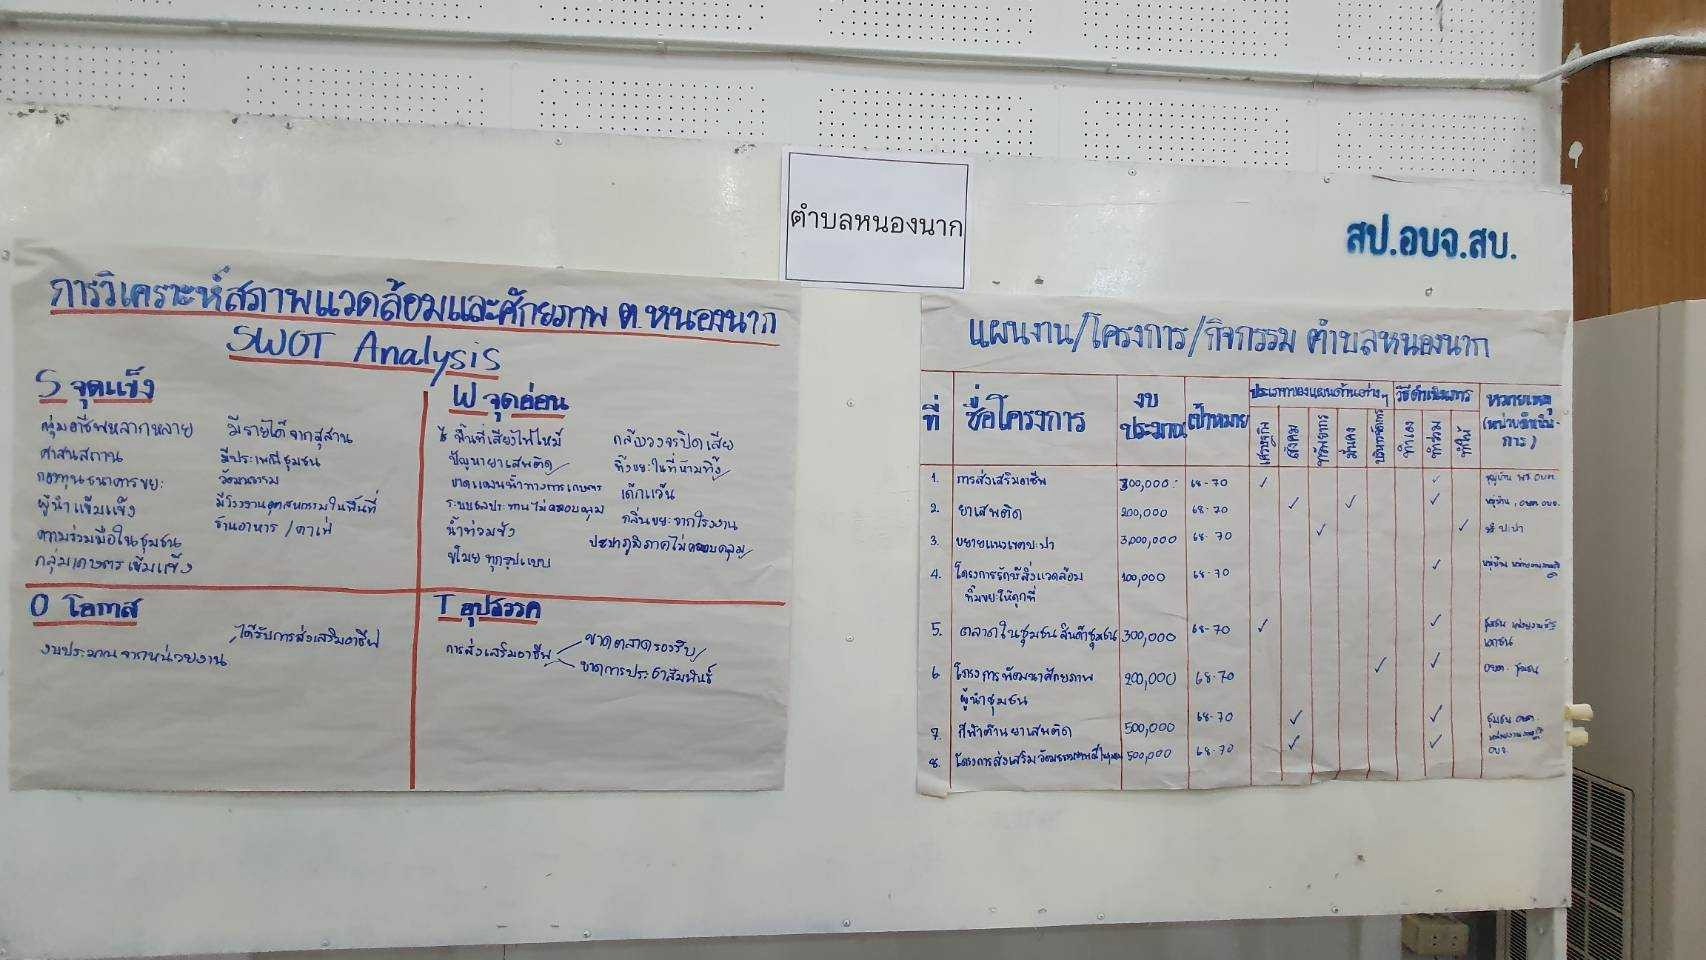 ตำบลหนองนาก
สป.อบจ.สบ.
การวิเคราะห์สภาพแวดล้อมและศักยภาพ ต.หนองนาก
SWOT Analysis
S จุดแข็ง
กลุ่มอาชีพหลากหลาย
ศาสนสถาน
กองทุนธนาคารขยะ
ผู้นำเข้มแข็ง
ความร่วมมือในชุมชน
กลุ่มเกษตรเข้มแข็ง
มีรายได้จากสุสาน
มีประเพณีชุมชน
วัฒนธรรม
มีโรงงานอุตสาหกรรมในพื้นที่
ร้านอาหาร / คาเฟ่
W จุดอ่อน
พื้นที่เสี่ยงไฟไหม้
ปัญหายาเสพติด
ขาดแคลนน้ำทางการเกษตร
ระบบชลประทานไม่ครอบคลุม
น้ำท่วมขัง
ขโมยทุกรูปแบบ
กล้องวงจรปิดเสีย
ทิ้งขยะในที่ห้ามทิ้ง
เด็กแว้น
กลิ่นขยะจากโรงงาน
ประปาภูมิภาคไม่ครอบคลุม
O โอกาส
งบประมาณจากหน่วยงาน
ได้รับการส่งเสริมอาชีพ
T อุปสรรค
การส่งเสริมอาชีพ
ขาดตลาดรองรับ
ขาดการประชาสัมพันธ์
แผนงาน/โครงการ/กิจกรรม ตำบลหนองนาก
ที่ ชื่อโครงการ งบประมาณ เป้าหมาย ประเภทของแผนด้านต่างๆ วิธีดำเนินการ หมายเหตุ (หน่วยดำเนินการ)
เศรษฐกิจ สังคม ทรัพยากร มั่นคง บริหารจัดการ ทำเอง ทำร่วม ทำให้
1. การส่งเสริมอาชีพ 300,000 68-70 ✓ ✓
2. ยาเสพติด 200,000 68-70 ✓ ✓ ✓
3. ขยายแนวเขตประปา 3,000,000 68-70 ✓ ✓
4. โครงการรักษ์สิ่งแวดล้อม 100,000 68-70 ✓
ทิ้งขยะให้ถูกที่
5. ตลาดในชุมชน สินค้าชุมชน 300,000 68-70 ✓ ✓
เอกชน
6 โครงการพัฒนาศักยภาพ 200,000 68-70 ✓ ✓ อบต. ชุมชน
ผู้นำชุมชน
7. กีฬาต้านยาเสพติด 500,000 68-70 ✓ ✓ ชุมชน อบต.
8. โครงการส่งเสริมวัฒนธรรม 500,000 68-70 ✓ ✓
อบจ.